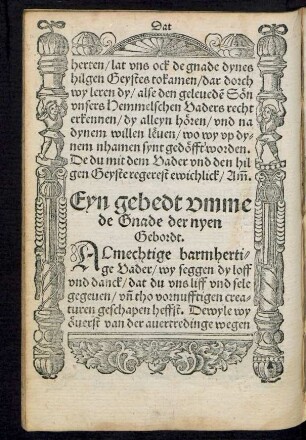 Dat
herten/lat vns ock de gnade dynes
hilgen Geystes tokamen/dar dorch
wy leren dy/alse den geleuedē Sön
vnsers Hemmelschen Vaders recht
erkennen/dy alleyn hören/vnd na
dynem willen lēuen/wo wy vp dy
nem nhamen synt gedöfft worden.
De du mit dem Vader vnd den hil
gen Geyste regerest ewichlick/Am̄.
Eyn gebedt vmme
de Gnade der nyen
Gebordt.
ALmechtige barmherti-
ge Vader/wy seggen dy loff
vnd danck/dat du vns liff vnd sele
gegeuen/vn̄ tho vornufftigen crea-
turen geschapen heffst. Dewyle wy
öuerst van der auertredinge wegen